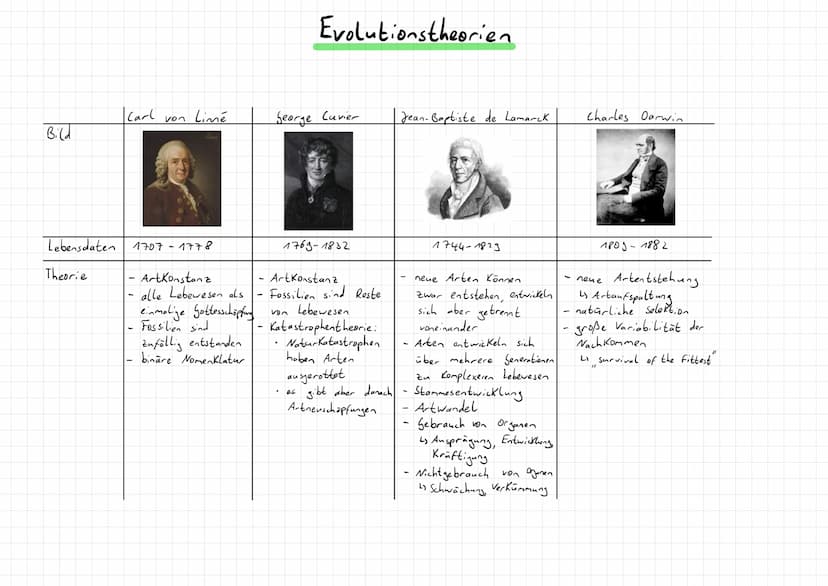 Evolutionstheorien
Carl von Linné
George Cuvier
Jean-Baptiste de Lamarck
Charles Darwin
Bild
Lebensdaten
1707 - 1778
1769-1832
1744-1829
1809 - 1882
Theorie
- Artkonstanz
- alle Lebewesen als
einmalige Gottesschöpfung
- Fossilien sind
zufällig entstanden
- binäre Nomenklatur
- Artkonstanz
- Fossilien sind Reste
von Lebewesen
- Katastrophentheorie:
• Naturkatastrophen
haben Arten
ausgerottet
• es gibt aber danach
Artneuschöpfungen
- neue Arten können
zwar entstehen, entwickeln
sich aber getrennt
voneinander
- Arten entwickeln sich
über mehrere Generationen
zu komplexeren Lebewesen
- Stammesentwicklung
- Artwandel
- Gebrauch von Organen
↳ Ausprägung, Entwicklung,
Kräftigung
- Nichtgebrauch von Organen
↳ Schwächung, Verkümmung
- neue Artentstehung
↳ Artaufspaltung
- natürliche Selektion
- große Variabilität der
Nachkommen
↳ "survival of the fittest"